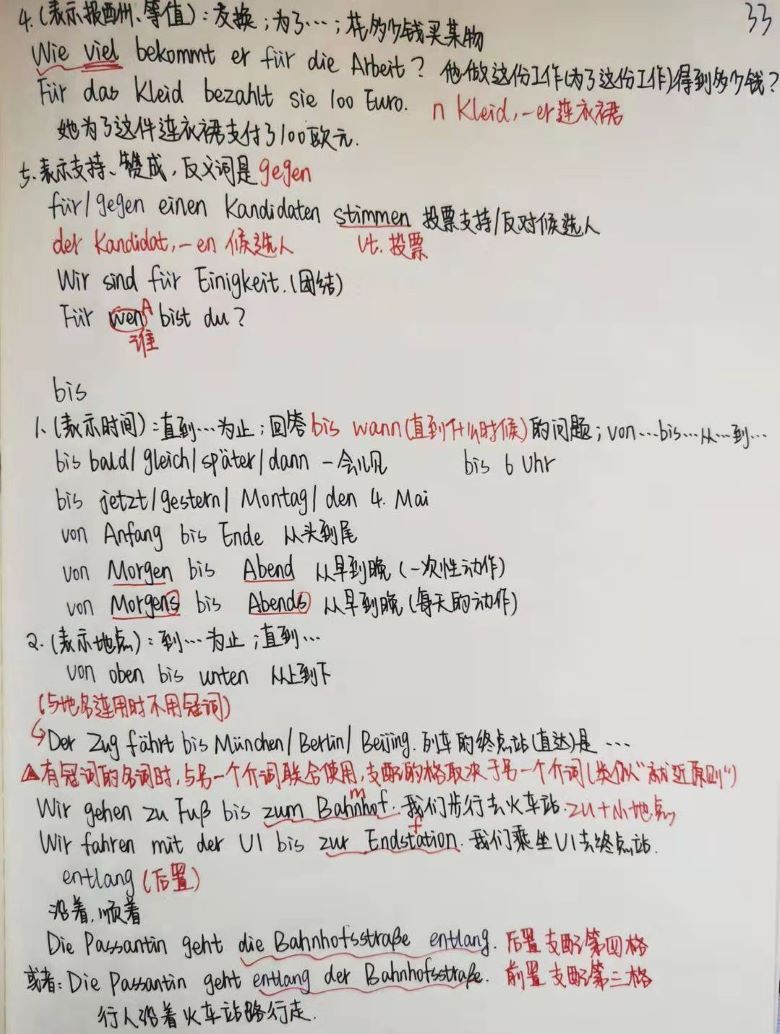 33
4.(表示报酬、等值):交换;为了…;花多少钱买某物
Wie viel bekommt er für die Arbeit? 他做这份工作(为了这份工作)得到多少钱?
Für das Kleid bezahlt sie 100 Euro. n Kleid, -er 连衣裙
她为了这件连衣裙支付了100欧元.
5.表示支持、赞成,反义词是gegen
für/gegen einen Kandidaten stimmen 投票支持/反对候选人
der Kandidat, -en 候选人 vt. 投票
Wir sind für Einigkeit.(团结)
Für wen bist du? A
谁
bis
1.(表示时间):直到…为止;回答bis wann(直到什么时候)的问题;von…bis…从…到…
bis bald/gleich/später/dann 一会儿见 bis 6 Uhr
bis jetzt/gestern/Montag/den 4. Mai
von Anfang bis Ende 从头到尾
von Morgen bis Abend 从早到晚(一次性动作)
von Morgens bis Abends 从早到晚(每天的动作)
2.(表示地点):到…为止;直到…
von oben bis unten 从上到下
(与地名连用时不用冠词)
Der Zug fährt bis München/Berlin/Beijing. 列车的终点站(直达)是…
△有冠词的名词时,与另一个介词联合使用,支配的格取决于另一个介词(类似“就近原则”)
Wir gehen zu Fuß bis zum Bahnhof. m 我们步行去火车站. zu+小地点
Wir fahren mit der U1 bis zur Endstation. f 我们乘坐U1去终点站.
entlang(后置)
沿着,顺着
Die Passantin geht die Bahnhofsstraße entlang. 后置支配第四格
或者:Die Passantin geht entlang der Bahnhofsstraße. 前置支配第三格
行人沿着火车站路行走.